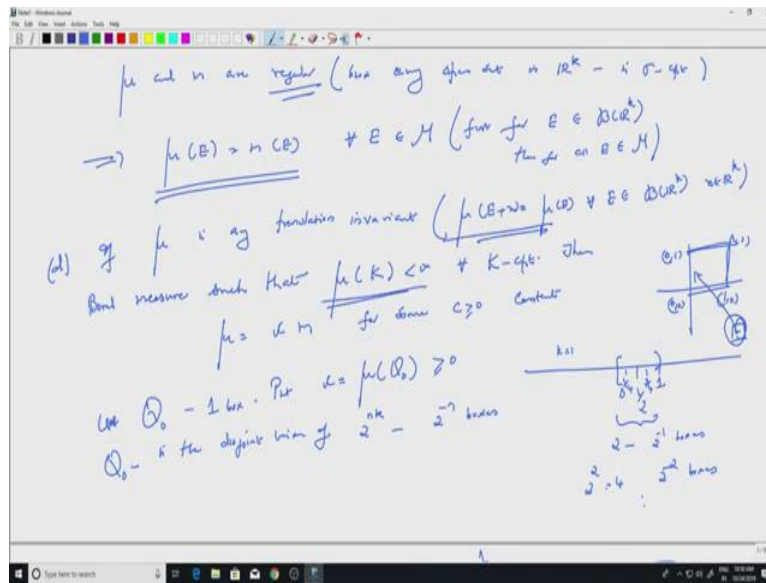 Note1 - Windows Journal
File Edit View Insert Actions Tools Help
μ and m are regular (bcz any open set in ℝ^k - is σ-cpt)
⟹ μ(E) = m(E) ∀ E ∈ M (first for E ∈ B(ℝ^k)
then for an E ∈ M)
(d) If μ is any translation invariant (μ(E+x) = μ(E) ∀ E ∈ B(ℝ^k) x∈ℝ^k)
Borel measure such that μ(K) < ∞ ∀ K-cpt. Then
μ = c m for some c ≥ 0 constant
(0,1) (1,1)
(0,0) (1,0)
E
Let Q₀ - 1 box. Put c = μ(Q₀) ≥ 0
Q₀ - is the disjoint union of 2^{nk} - 2^{-n} boxes
k=1
0 ¼ ½ ¾ 1
2 - 2^{-1} boxes
2^2 = 4 2^{-2} boxes
⋮
Type here to search
ENG
IN